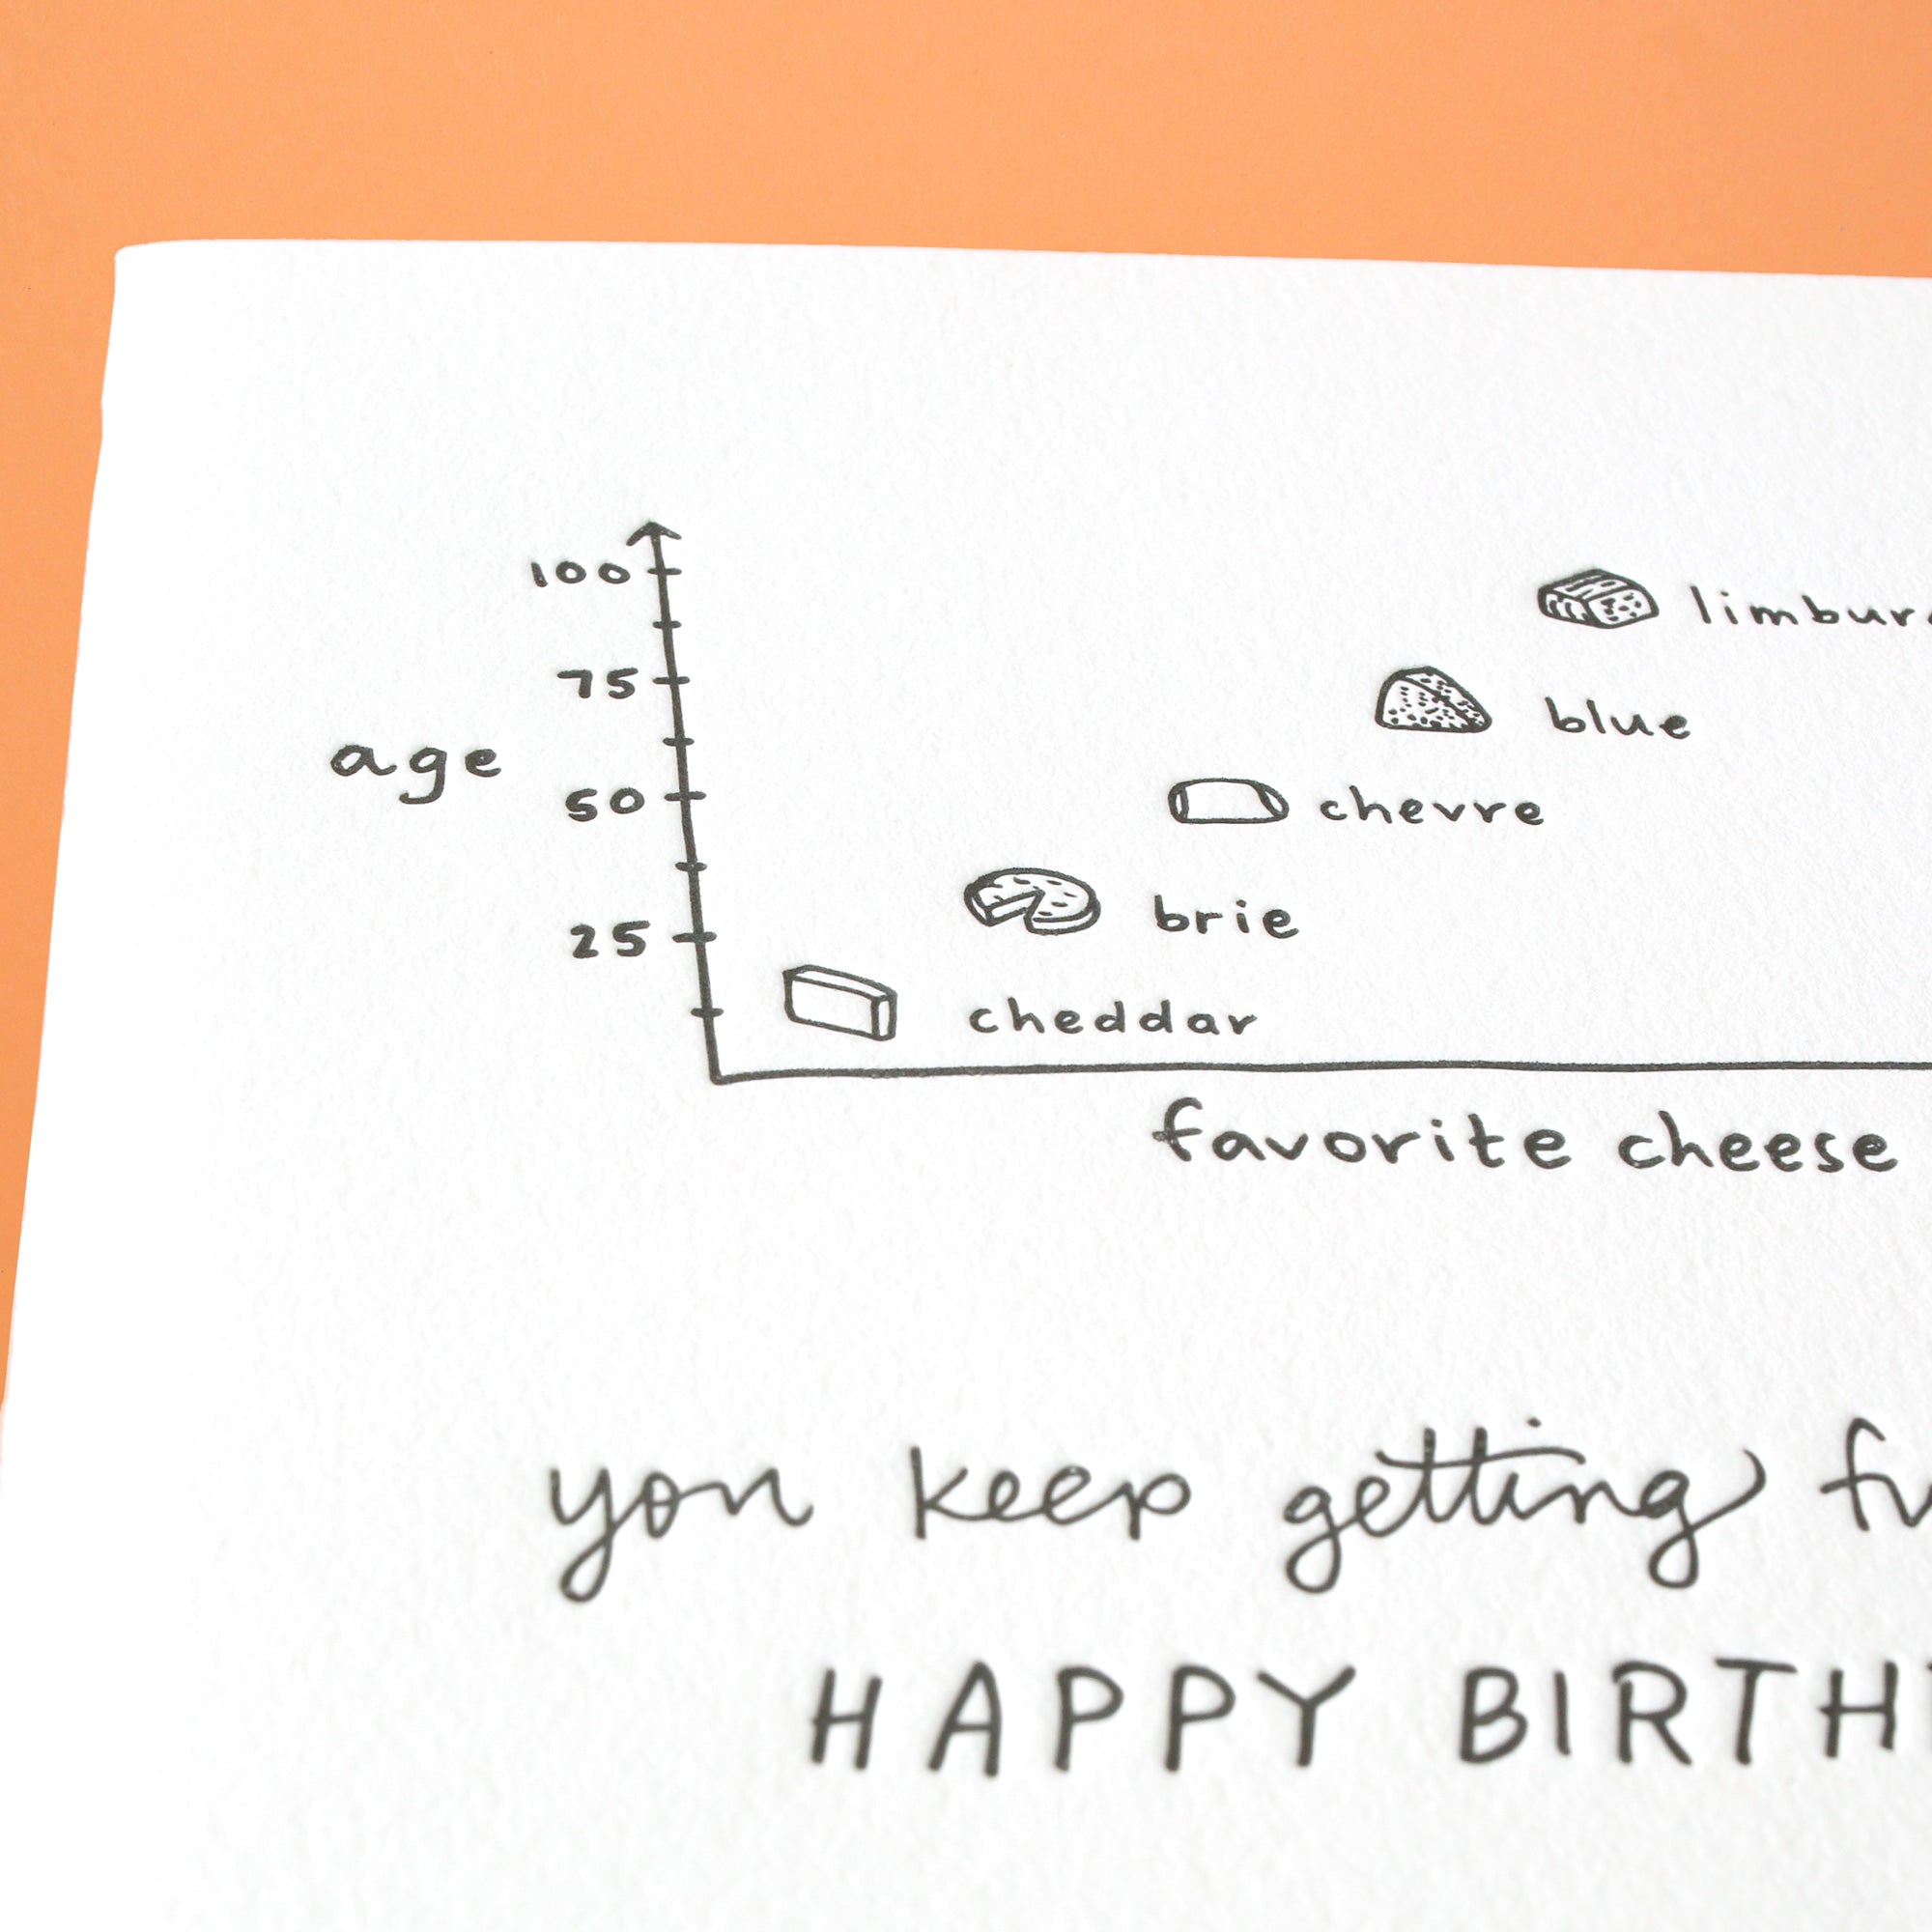 100
limbur
75
blue
age
50
chevre
brie
25
cheddar
favorite cheese
you keep getting fu
HAPPY BIRTH